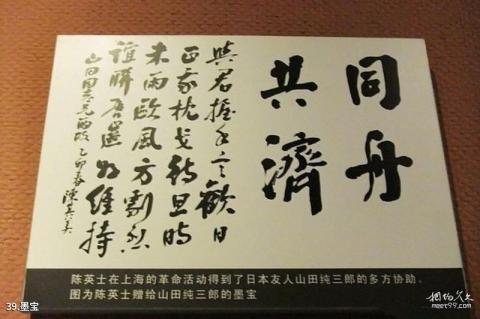 同舟
共濟
與君握手言歡日
正我枕戈待旦時
未雨歐風方劇烈
誼聯唇齒好維持
山田同志兄两政 乙卯春 陳其美
陈英士在上海的革命活动得到了日本友人山田纯三郎的多方协助。
图为陈英士赠给山田纯三郎的墨宝
39.墨宝
meet99.com